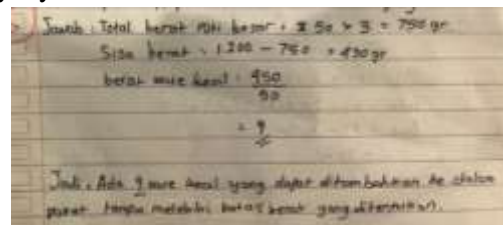 Jawab : Total berat roti besar : 250 x 3 = 750 gr
Sisa berat : 1.200 - 750 = 450 gr
berat kecil : 450
50
= 9
Jadi, Ada 9 kecil yang dapat ditambahkan ke dalam
paket tanpa melebihi batas berat yang ditentukan.